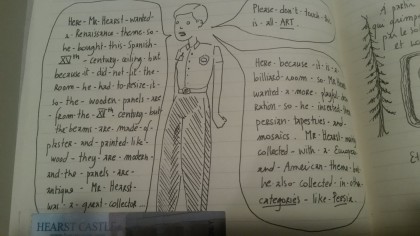 Here - Mr - Hearst - wanted
a - Renaissance - theme - so -
he - bought - this - Spanish -
XVth - century - ceiling - but
because - it - did - not - fit - the
Room - he - had - to - resize - it -
so - the - wooden - panels - are -
from - the - XVth - century - but
the - beams - are - made - of
plaster - and - painted - like -
wood - they - are - modern -
and - the - panels - are -
antique - Mr - Hearst -
was - a - great - collector...
Please - don't - touch - this -
is - all - ART...
Here - because - it - is - a -
billiard - room - so - Mr
wanted - a - more - playful
so - he - inserted
persian - tapestries - and -
mosaics - Mr - Hearst
collected - with - a -
and - American - theme - but
he - also - collected - in
categories - like - Persia...
HEARST CASTLE
A